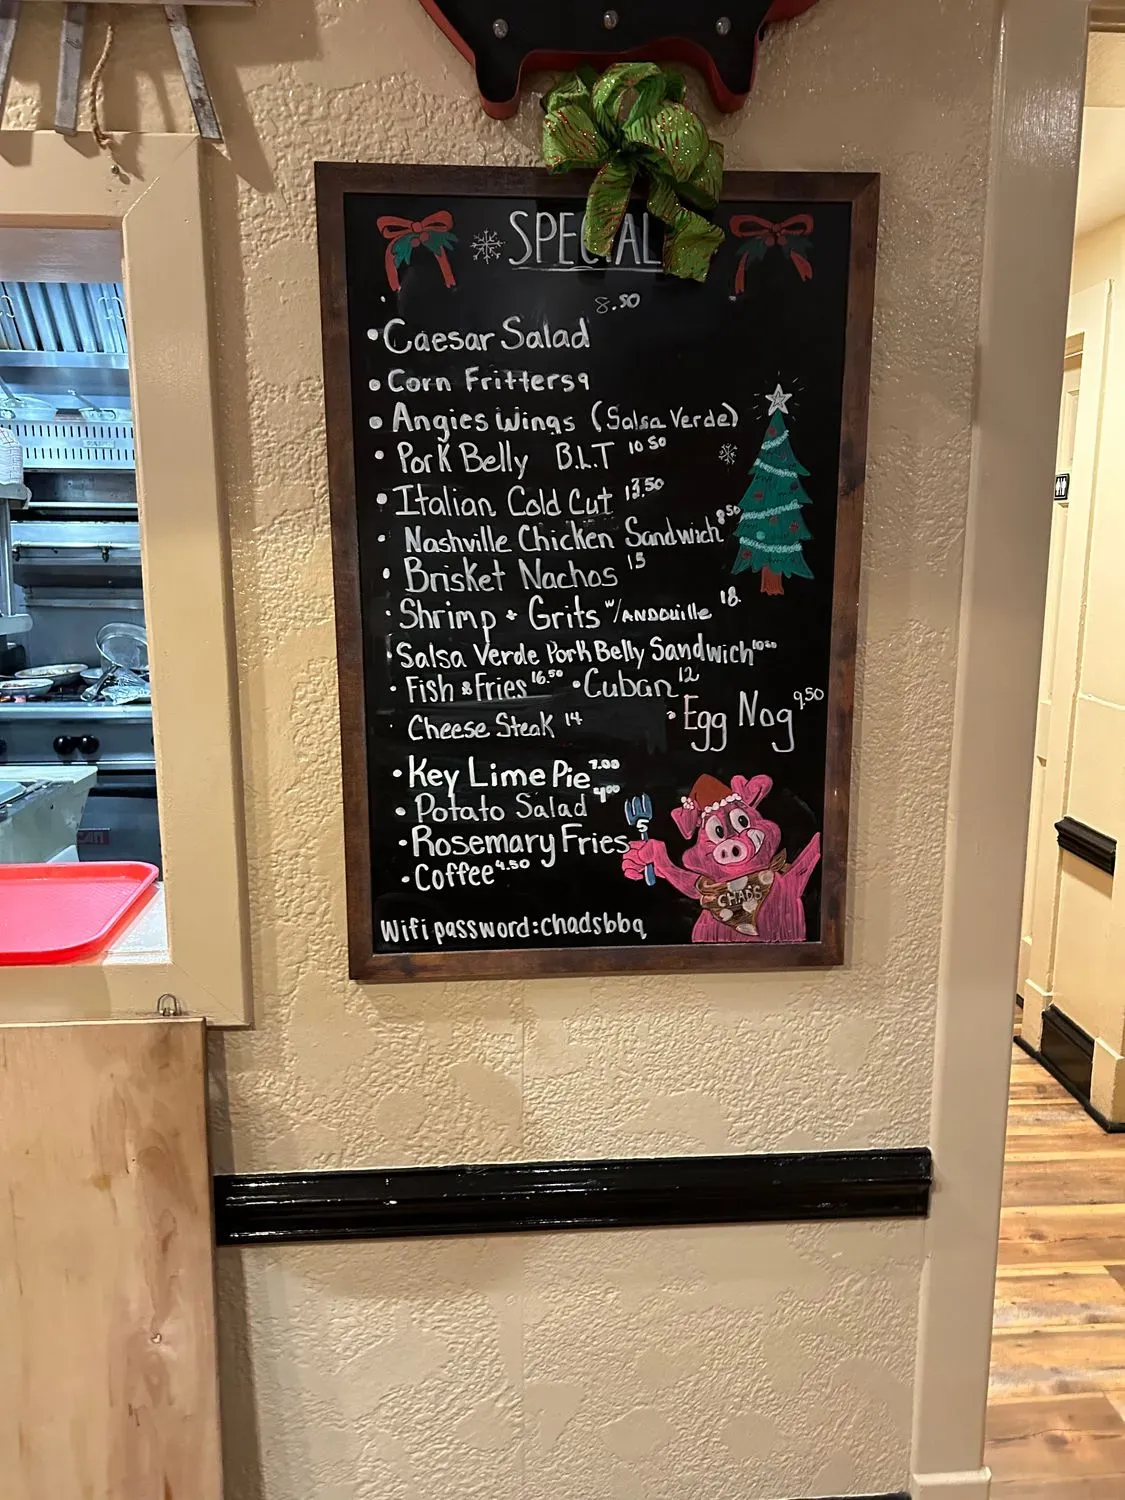 SPECIAL
8.50
• Caesar Salad
• Corn Fritters 9
• Angies Wings (Salsa Verde)
• Pork Belly B.L.T 10.50
• Italian Cold Cut 13.50
• Nashville Chicken Sandwich 8.50
• Brisket Nachos 15
• Shrimp + Grits w/ANDOUille 18.
• Salsa Verde Pork Belly Sandwich 10.50
• Fish & Fries 16.50 • Cuban 12
• Cheese Steak 14 • Egg Nog 9.50
• Key Lime Pie 7.00
• Potato Salad 4.00
• Rosemary Fries 5
• Coffee 4.50
CHAD'S
Wifi password: chadsbbq